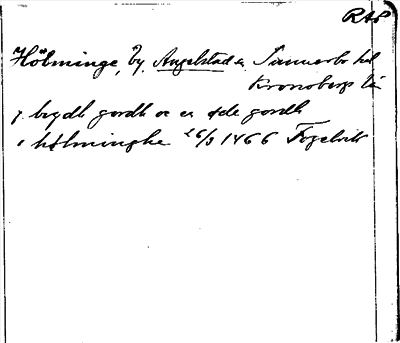 RAP
Hölminge, by, Angelstad sn, Sunnerbo hd
Kronobergs län
j. bygdh gordh oc en øde gordh
i hølminghe 26/3 1466 Fogelvik